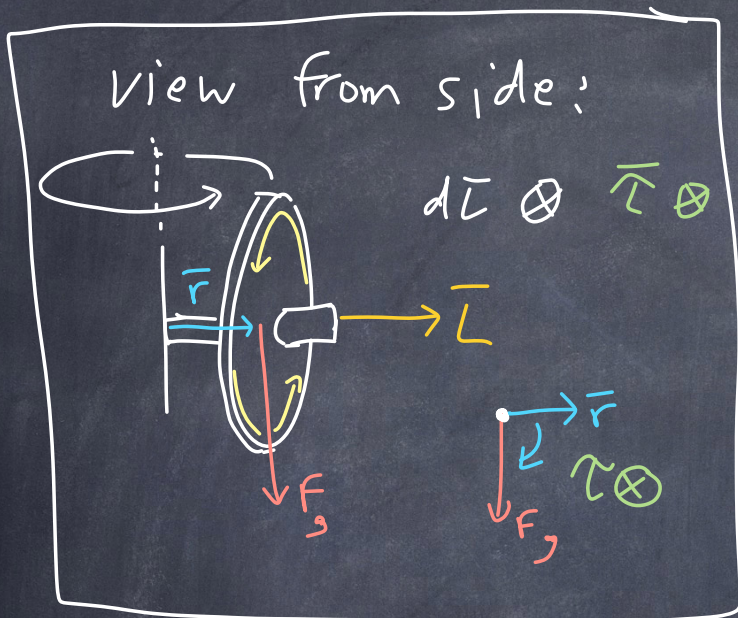 View from side:
dL̅ ⊗ τ̅ ⊗
r̅
L̅
r̅
τ ⊗
Fg
Fg